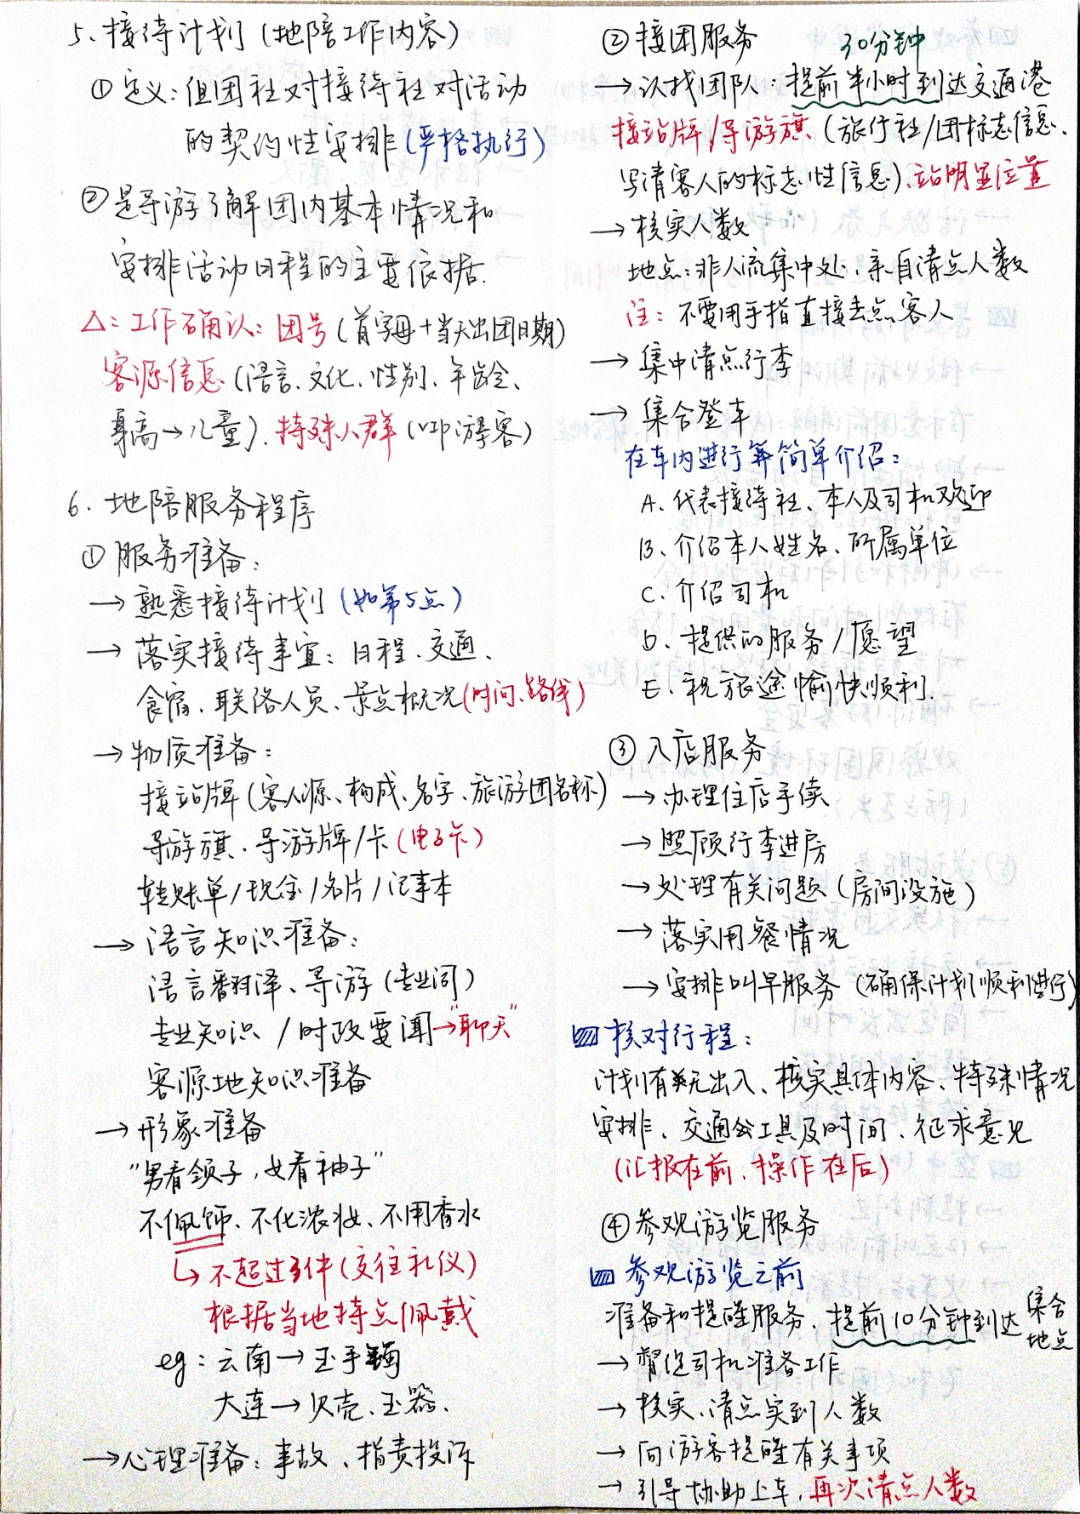 5、接待计划 (地陪工作内容)
①定义:组团社对接待社对活动
的契约性安排(严格执行)
②是导游了解团内基本情况和
安排活动日程的主要依据.
△:工作确认:团号(首字母+当天出团日期)
客源信息(语言、文化、性别、年龄、
身高→儿童)、特殊人群(VIP游客)
6、地陪服务程序
①服务准备:
→熟悉接待计划(如第5点)
→落实接待事宜:日程、交通、
食宿、联络人员、景点概况(时间、路线)
→物质准备:
接站牌(客人源、构成、名字、旅游团名称)
导游旗、导游牌/卡(电子卡)
转账单/现金/名片/记事本
→语言知识准备:
语言翻译、导游(专业词)
专业知识/时政要闻→"聊天"
客源地知识准备
→形象准备
"男看领子,女看袖子"
不佩饰、不化浓妆、不用香水
↳不超过3件(交往礼仪)
根据当地特点佩戴
eg:云南→玉手镯
大连→贝壳、玉器、
→心理准备:事故、指责投诉
②接团服务 30分钟
→认找团队:提前半小时到达交通港
接站牌/导游旗(旅行社/团标志信息、
写清客人的标志性信息)、站明显位置
→核实人数
地点:非人流集中处、亲自清点人数
注:不要用手指直接去点客人
→集中清点行李
→集合登车
在车内进行简单介绍:
A.代表接待社、本人及司机欢迎
B.介绍本人姓名、所属单位
C.介绍司机
D.提供的服务/愿望
E.祝旅途愉快顺利.
③入店服务
→办理住店手续
→照顾行李进房
→处理有关问题(房间设施)
→落实用餐情况
→安排叫早服务(确保计划顺利进行)
核对行程:
计划有无出入、核实具体内容、特殊情况
安排、交通工具及时间、征求意见
(汇报在前、操作在后)
④参观游览服务
参观游览之前
准备和提醒服务、提前10分钟到达集合地点
→督促司机准备工作
→核实、清点实到人数
→向游客提醒有关事项
→引导协助上车,再次清点人数